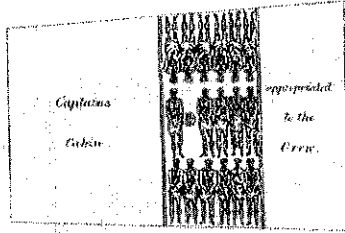 Captains
Cabin
appropriated
to the
Crew.